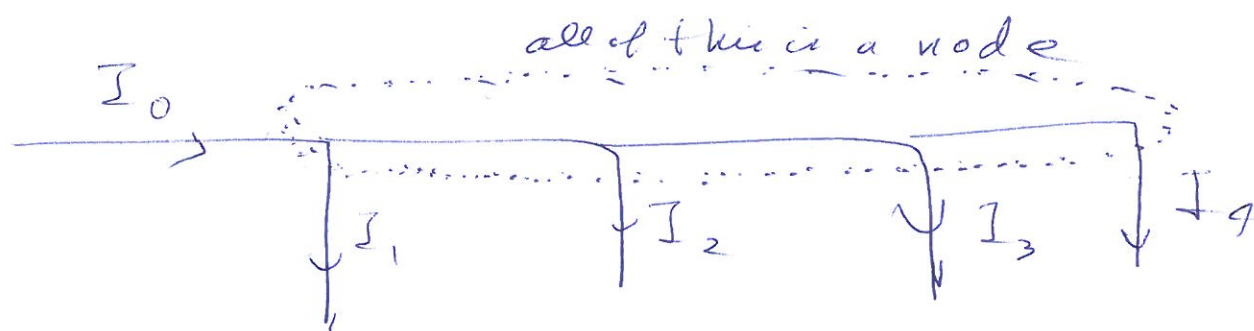 all of this is a node
I₀
I₁ I₂ I₃ I₄